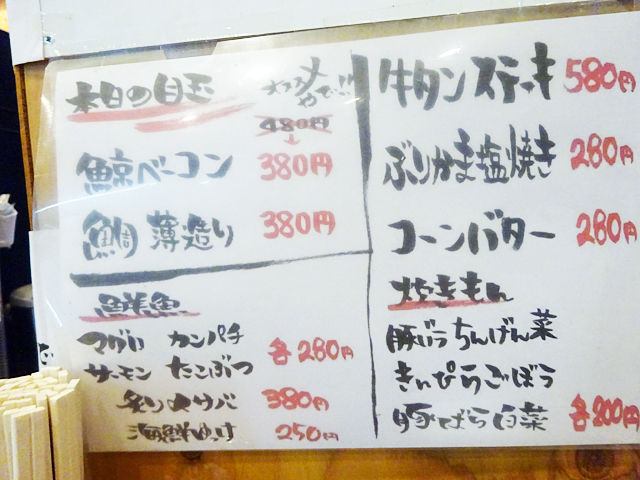 本日の目玉
オススメやでぃ!!
480円
鯨ベーコン 380円
鯛 薄造り 380円
鮮魚
マグロ カンパチ
サーモン たこぶつ 各280円
炙り〆サバ 380円
海鮮ゆっけ 250円
牛タンステーキ 580円
ぶりかま塩焼き 280円
コーンバター 280円
炊きもん
豚じゃうちんげん菜
きんぴらごぼう
豚ばら白菜 各200円